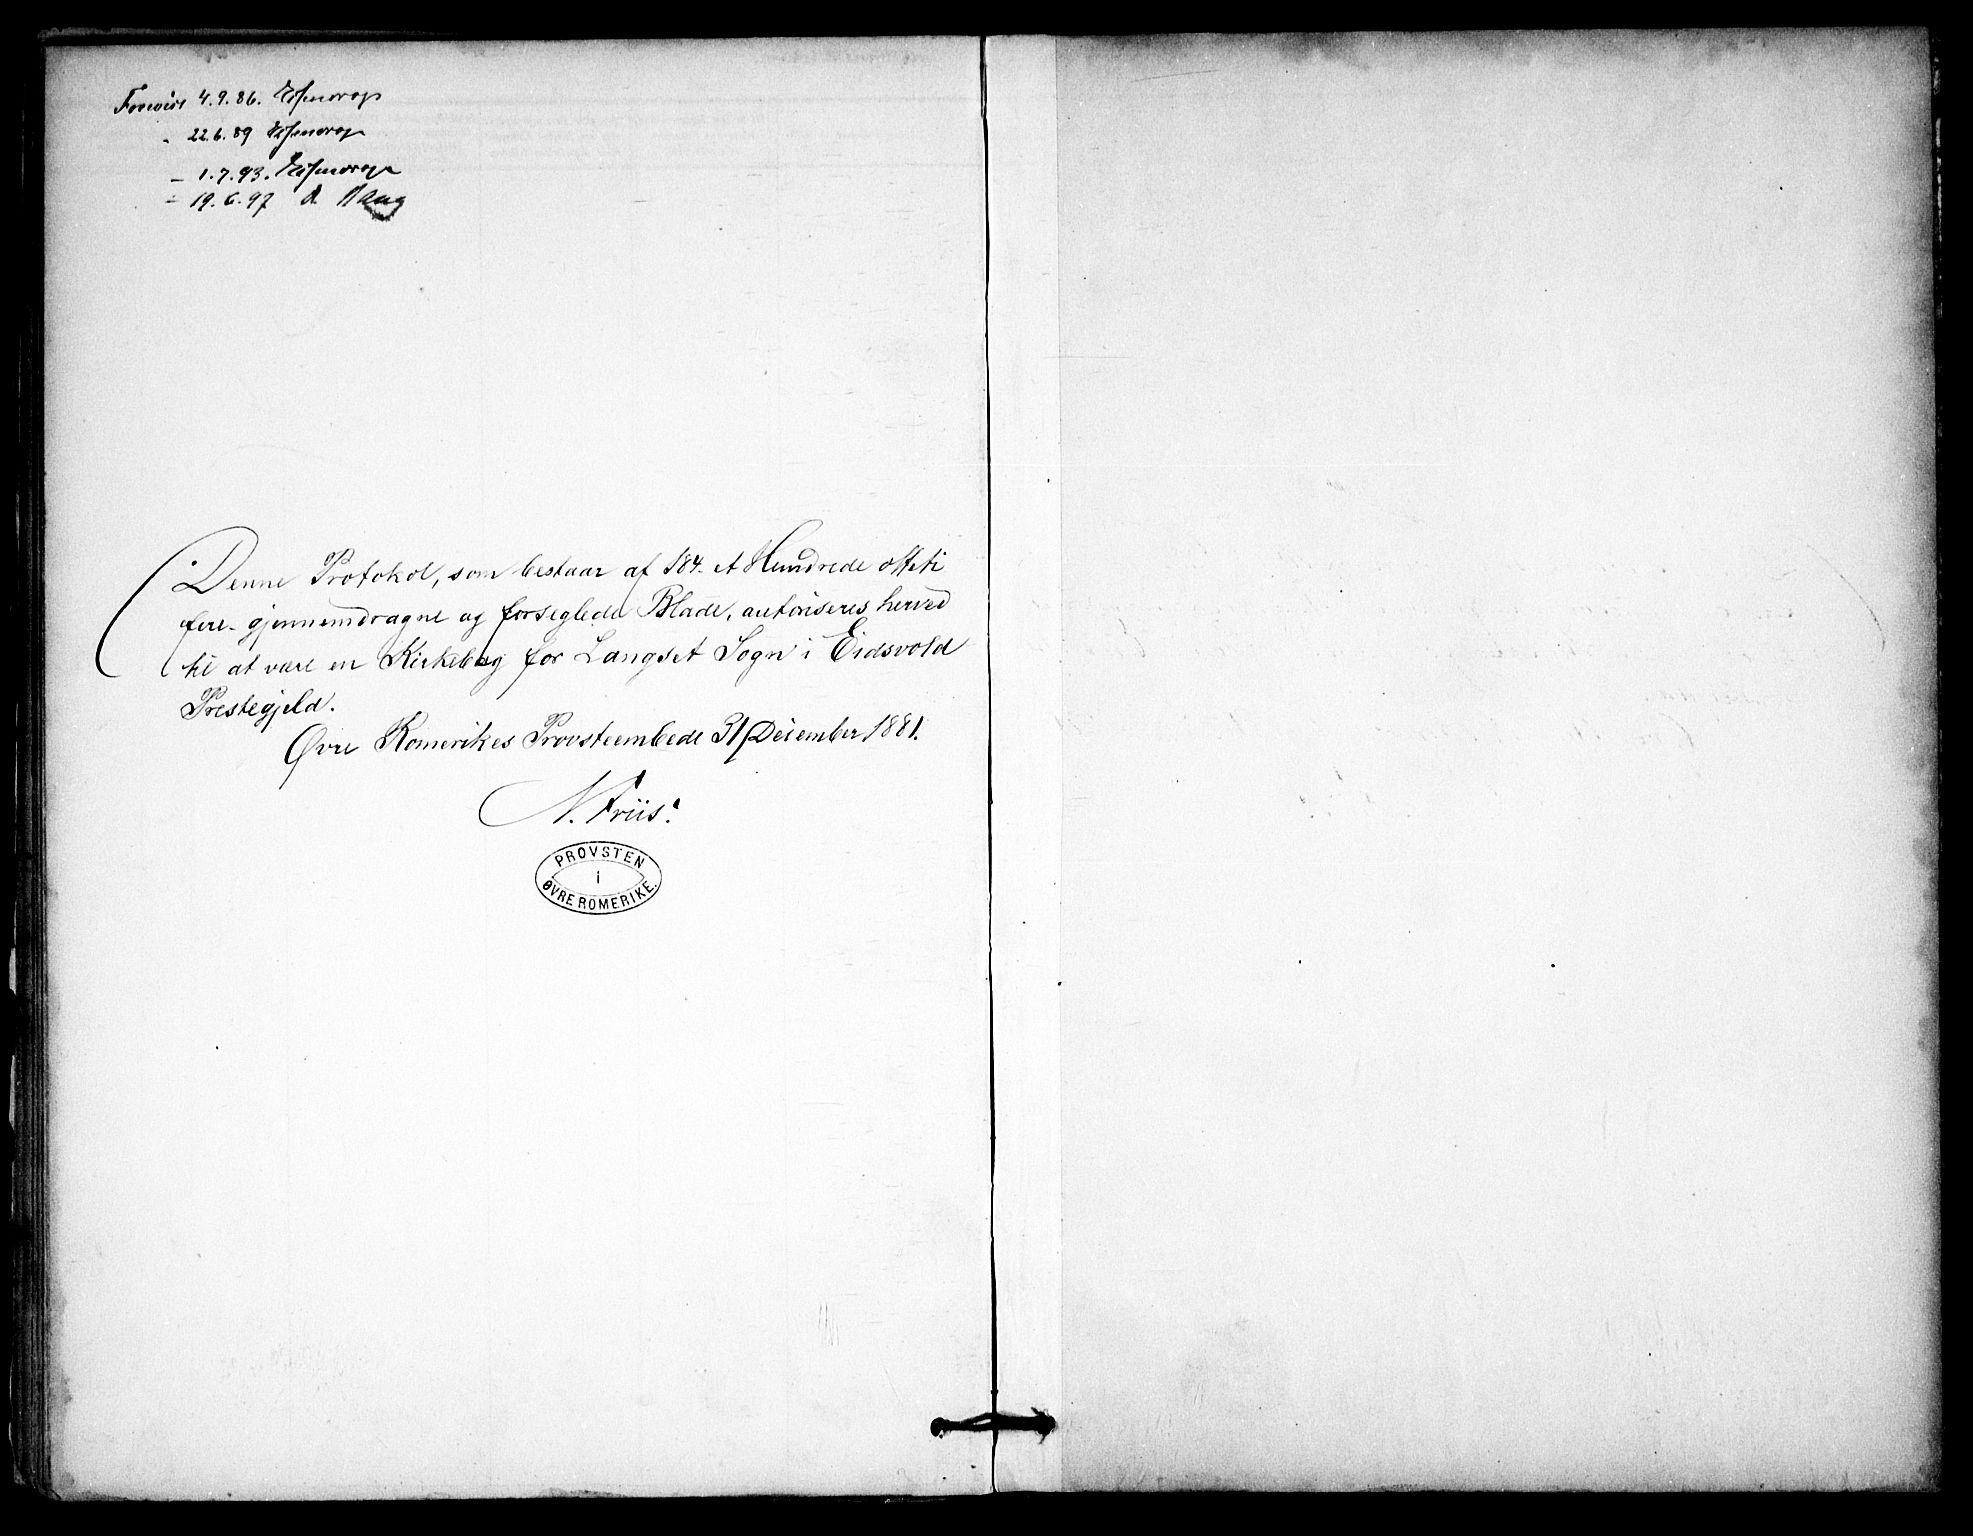 Forevist 4.9.86.
" 22.6.89
– 1.7.93.
– 19.6.97 Haug
Denne Protokol, som bestaar af 184 - et Hundrede otteti
fire - gjennemdragne og forseglede Blade, autoriseres herved
til at være en Kirkebog for Langset Sogn i Eidsvold
Prestegjeld.
Øvre Romerikes Provsteembede 31/December 1881.
N. Friis.
PROVSTEN
i
ØVRE ROMERIKE.